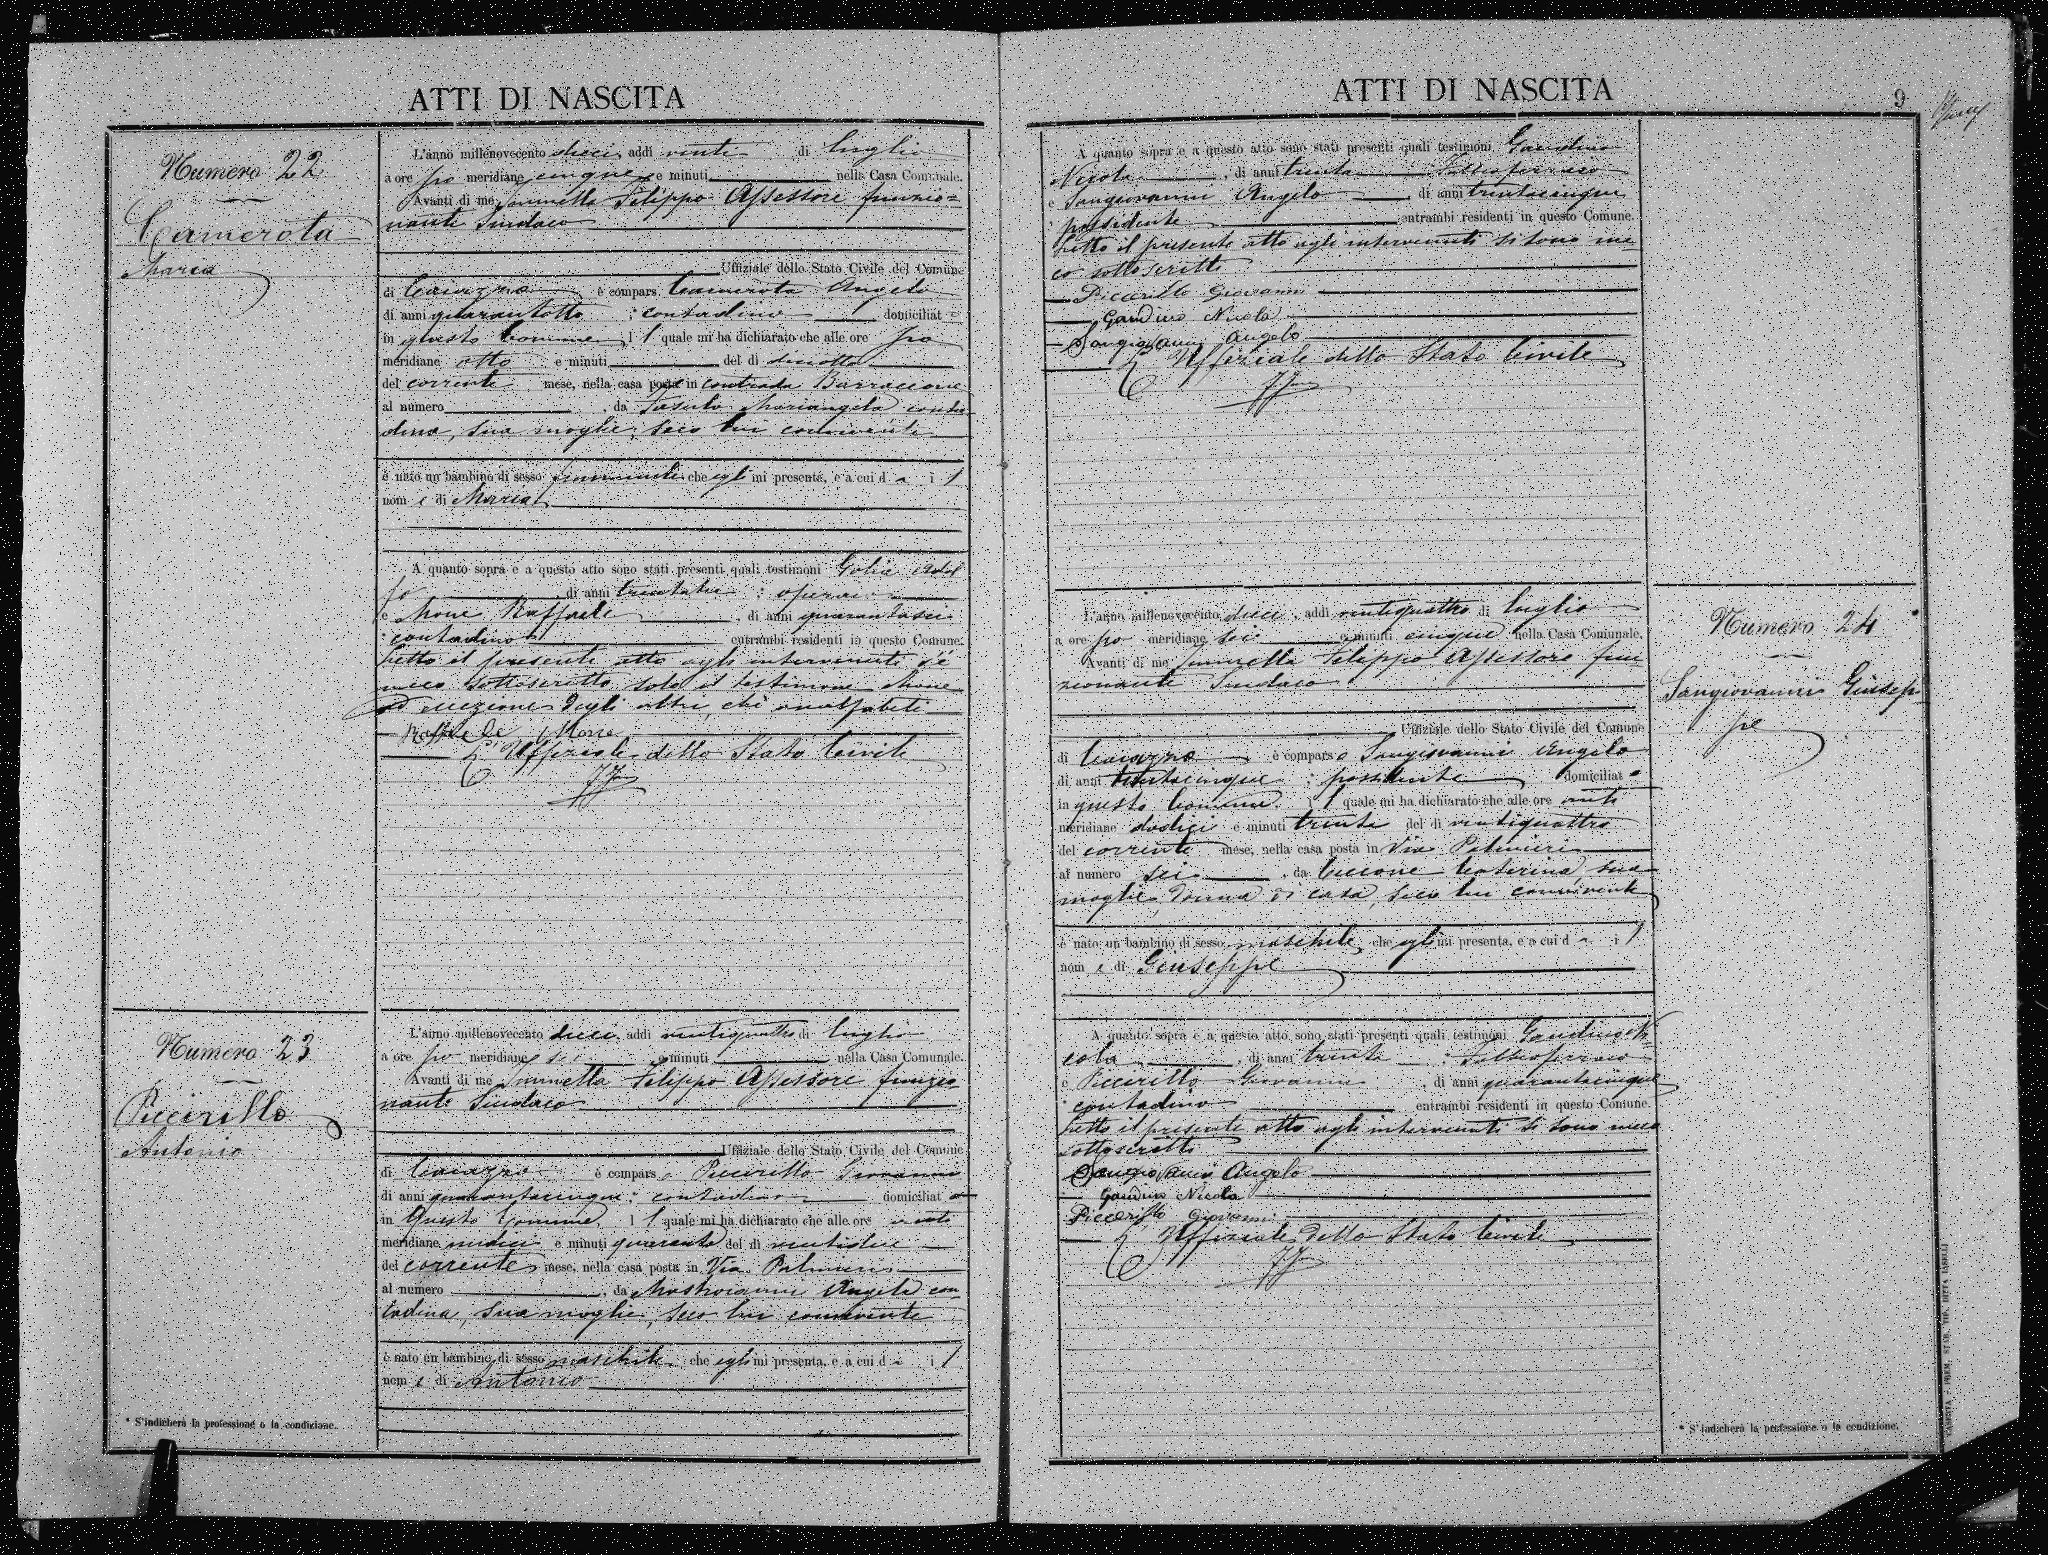 ATTI DI NASCITA
Numero 22
Camerota
Maria
L'anno millenovecento dieci, addi venti di luglio
a ore po meridiane cinque e minuti nella Casa Comunale.
Avanti di me Filippo Assessore funzio=
nante Sindaco
Uffiziale dello Stato Civile del Comune
di Caiazzo è compars Camerota Angelo
di anni quarantotto : contadino domiciliat o
in questo Comune, l l quale mi ha dichiarato che alle ore po
meridiane otto e minuti del dì diciotto
del corrente mese, nella casa posta in contrada Barraccone
al numero , da Fasulo Mariangela conta
dina, sua moglie, seco lui convivente
è nato un bambino di sesso femminile che egli mi presenta, e a cui d à i l
nom e di Maria
A quanto sopra e a questo atto sono stati presenti quali testimoni Golia Adol
fo di anni trentatre : operaio
e Mone Raffaele , di anni quarantasei
: contadino entrambi residenti in questo Comune.
Letto il presente atto agli intervenuti s'è
meco sottoscritto solo il testimone Mone
ad eccezione degli altri, chè analfabeti
Raffaele Mone
L'Uffiziale dello Stato Civile
Numero 23
Piccirillo
Antonio
L'anno millenovecento dieci, addi ventiquattro di luglio
a ore po meridiane sei e minuti nella Casa Comunale.
Avanti di me Filippo Assessore funzio
nante Sindaco
Uffiziale dello Stato Civile del Comune
di Caiazzo è compars o Piccirillo Giovanni
di anni quarantacinque : contadino domiciliat o
in questo Comune, l l quale mi ha dichiarato che alle ore anti
meridiane undici e minuti quaranta del dì ventidue
del corrente mese, nella casa posta in Via Palmieri
al numero , da Mastroianni Angela con
tadina, sua moglie, seco lui convivente
è nato un bambino di sesso maschile che egli mi presenta, e a cui d à i l
nom e di Antonio
* S'indicherà la professione o la condizione.
ATTI DI NASCITA
9
A quanto sopra e a questo atto sono stati presenti quali testimoni Gaudino
Nicola , di anni trenta : Fabbroferraio
e Sangiovanni Angelo , di anni trentacinque
: possidente entrambi residenti in questo Comune.
Letto il presente atto agli intervenuti si sono me
co sottoscritti
Piccirillo Giovanni
Gaudino Nicola
Sangiovanni Angelo
L'Uffiziale dello Stato Civile
L'anno millenovecento dieci, addi ventiquattro di luglio
a ore po meridiane sei e minuti cinque nella Casa Comunale.
Avanti di me Filippo Assessore fun
zionante Sindaco
Uffiziale dello Stato Civile del Comune
di Caiazzo è compars o Sangiovanni Angelo
di anni trentacinque : possidente domiciliat o
in questo Comune, l l quale mi ha dichiarato che alle ore anti
meridiane dodici e minuti trenta del dì ventiquattro
del corrente mese, nella casa posta in Via Palmieri
al numero sei , da Caterina, sua
moglie, donna di casa, seco lui convivente
è nato un bambino di sesso maschile che egli mi presenta, e a cui d à i l
nom e di Giuseppe
A quanto sopra e a questo atto sono stati presenti quali testimoni Gaudino Ni
cola , di anni trenta : Fabbroferraio
e Piccirillo Giovanni , di anni quarantacinque
: contadino entrambi residenti in questo Comune.
Letto il presente atto agli intervenuti si sono meco
sottoscritti
Sangiovanni Angelo
Gaudino Nicola
Piccirillo Giovanni
L'Uffiziale dello Stato Civile
Numero 24
Sangiovanni Giusep
pe
* S'indicherà la professione o la condizione.